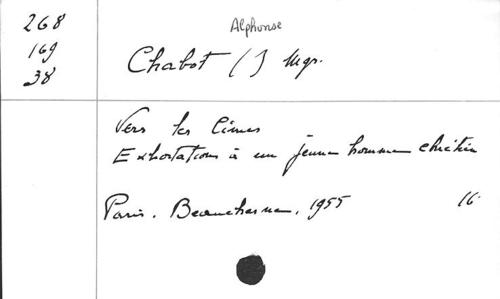 268
169
38
Alphonse
Chabot ( ) Mgr.
Vers les Cimes
Exhortations à un jeune homme chrétien
Paris. Beauchesne, 1955 16